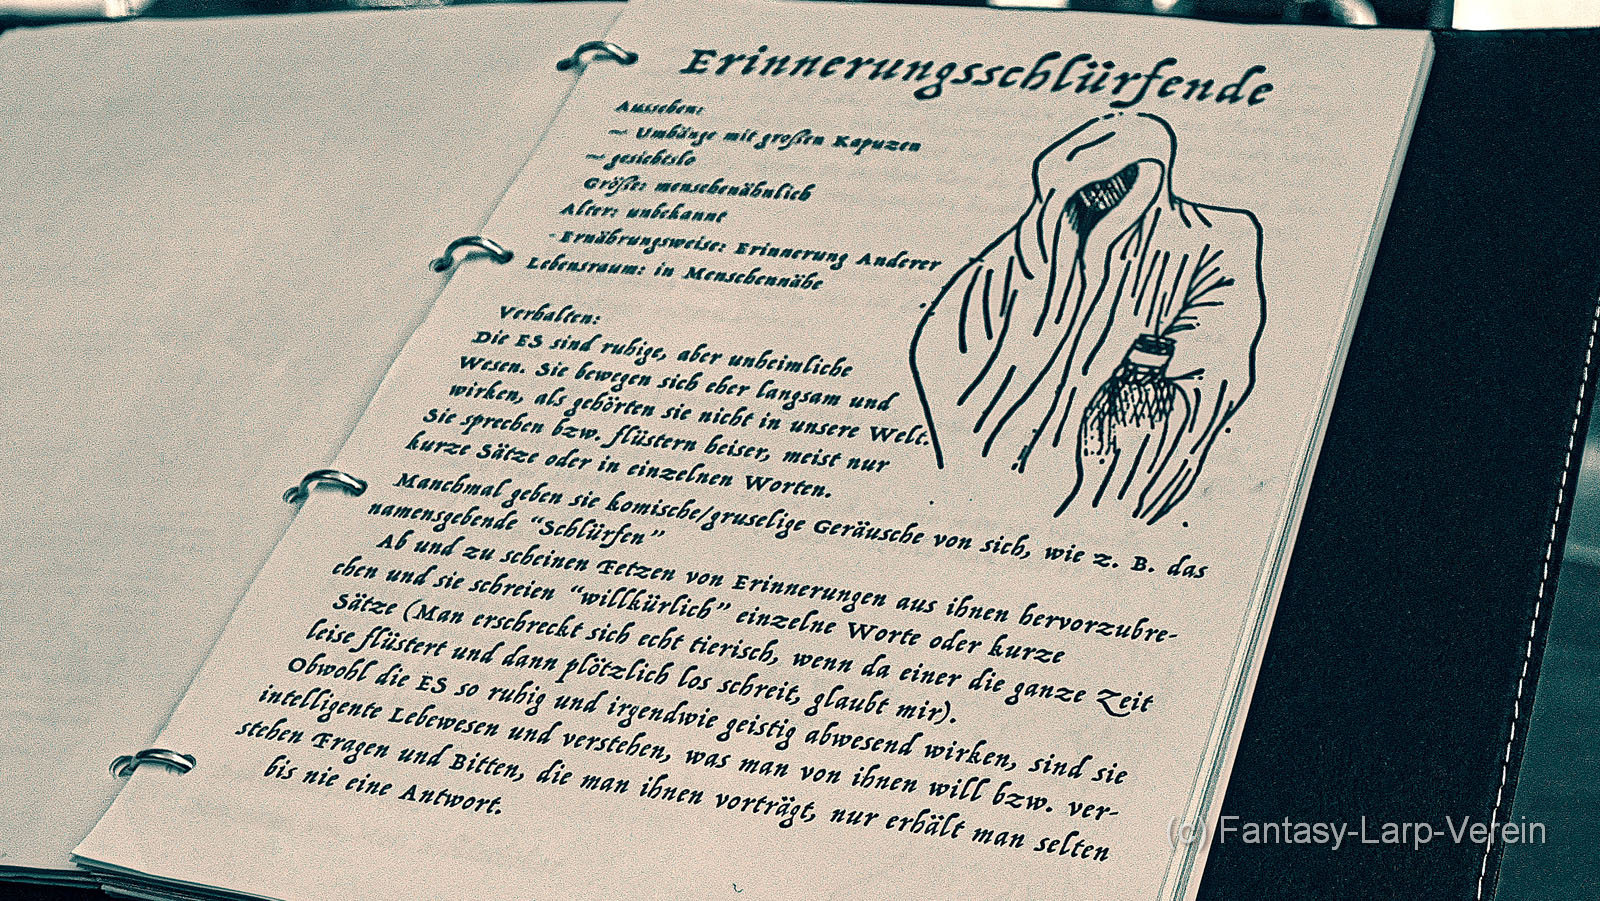 Erinnerungsschlürfende
Aussehen:
~ Umhänge mit großen Kapuzen
~ gesichtslo
Größe: menschenähnlich
Alter: unbekannt
- Ernährungsweise: Erinnerung Anderer
Lebensraum: in Menschennähe
Verhalten:
Die ES sind ruhige, aber unheimliche
Wesen. Sie bewegen sich eher langsam und
wirken, als gehörten sie nicht in unsere Welt.
Sie sprechen bzw. flüstern heiser, meist nur
kurze Sätze oder in einzelnen Worten.
Manchmal geben sie komische/gruselige Geräusche von sich, wie z. B. das
namensgebende “Schlürfen”
Ab und zu scheinen Fetzen von Erinnerungen aus ihnen hervorzubre-
chen und sie schreien “willkürlich” einzelne Worte oder kurze
Sätze (Man erschreckt sich echt tierisch, wenn da einer die ganze Zeit
leise flüstert und dann plötzlich los schreit, glaubt mir).
Obwohl die ES so ruhig und irgendwie geistig abwesend wirken, sind sie
intelligente Lebewesen und verstehen, was man von ihnen will bzw. ver-
stehen Fragen und Bitten, die man ihnen vorträgt, nur erhält man selten
bis nie eine Antwort.
(c) Fantasy-Larp-Verein